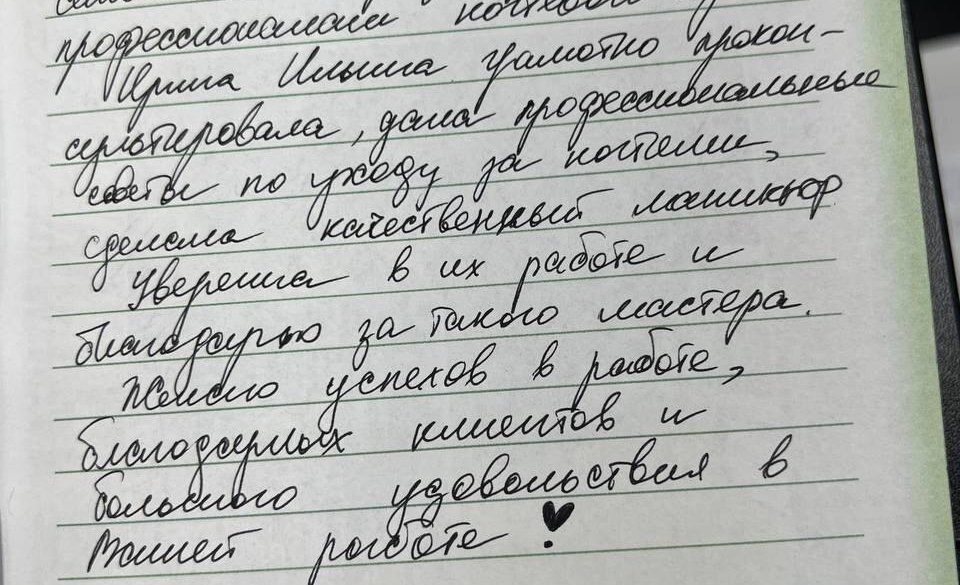 профессионалам ногтевого
Ирина Ильина грамотно прокон-
сультировала, дала профессиональные
советы по уходу за ногтями,
сделала качественный маникюр
Уверена в их работе и
благодарю за такого мастера.
Желаю успехов в работе,
благодарных клиентов и
большого удовольствия в
Вашей работе !